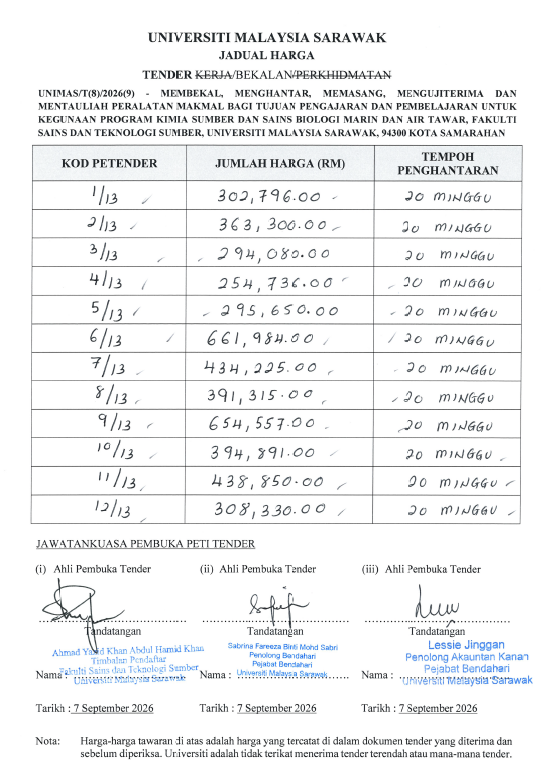 UNIVERSITI MALAYSIA SARAWAK
JADUAL HARGA
TENDER KERJA/BEKALAN/PERKHIDMATAN
UNIMAS/T(8)/2026(9) - MEMBEKAL, MENGHANTAR, MEMASANG, MENGUJITERIMA DAN
MENTAULIAH PERALATAN MAKMAL BAGI TUJUAN PENGAJARAN DAN PEMBELAJARAN UNTUK
KEGUNAAN PROGRAM KIMIA SUMBER DAN SAINS BIOLOGI MARIN DAN AIR TAWAR, FAKULTI
SAINS DAN TEKNOLOGI SUMBER, UNIVERSITI MALAYSIA SARAWAK, 94300 KOTA SAMARAHAN
KOD PETENDER JUMLAH HARGA (RM) TEMPOH PENGHANTARAN
1/13 302,796.00 20 MINGGU
2/13 363,300.00 20 MINGGU
3/13 294,080.00 20 MINGGU
4/13 254,736.00 20 MINGGU
5/13 295,650.00 20 MINGGU
6/13 661,984.00 20 MINGGU
7/13 434,225.00 20 MINGGU
8/13 391,315.00 20 MINGGU
9/13 654,557.00 20 MINGGU
10/13 394,891.00 20 MINGGU
11/13 438,850.00 20 MINGGU
12/13 308,330.00 20 MINGGU
JAWATANKUASA PEMBUKA PETI TENDER
(i) Ahli Pembuka Tender (ii) Ahli Pembuka Tender (iii) Ahli Pembuka Tender
Tandatangan Tandatangan Tandatangan
Ahmad Yazid Khan Abdul Hamid Khan
Timbalan Pendaftar
Fakulti Sains dan Teknologi Sumber
Nama : Universiti Malaysia Sarawak
Sabrina Fareeza Binti Mohd Sabri
Penolong Bendahari
Pejabat Bendahari
Nama : Universiti Malaysia Sarawak
Lessie Jinggan
Penolong Akauntan Kanan
Pejabat Bendahari
Nama : Universiti Malaysia Sarawak
Tarikh : 7 September 2026 Tarikh : 7 September 2026 Tarikh : 7 September 2026
Nota: Harga-harga tawaran di atas adalah harga yang tercatat di dalam dokumen tender yang diterima dan
sebelum diperiksa. Universiti adalah tidak terikat menerima tender terendah atau mana-mana tender.